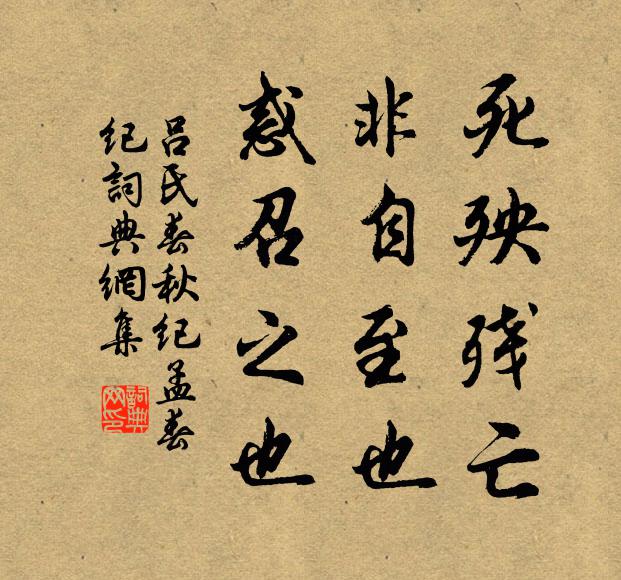 死殃残亡
非自至也
惑召之也
吕氏春秋纪孟春
纪詞典網集
詞典
网印